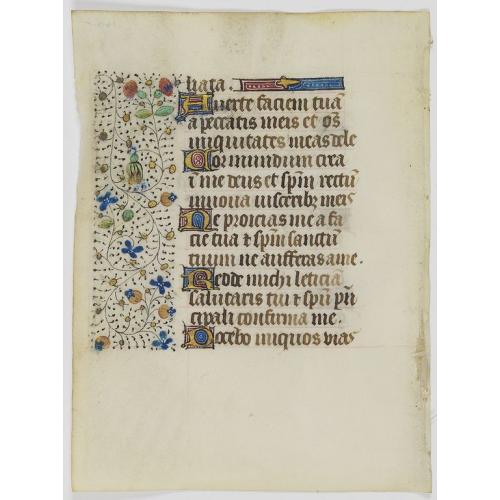 liata.
Auerte faciem tuā
a peccatis meis et oēs
iniquitates meas dele
Cor mundum crea
ī me deus et spm̄ rectū
innoua uisceribȝ meis
Ne proicias me a fa
cie tua ⁊ spm̄ sanctū
tuum ne aufferas a me.
Redde michi leticiā
salutaris tui ⁊ spū prī
cipali confirma me.
Docebo iniquos uias